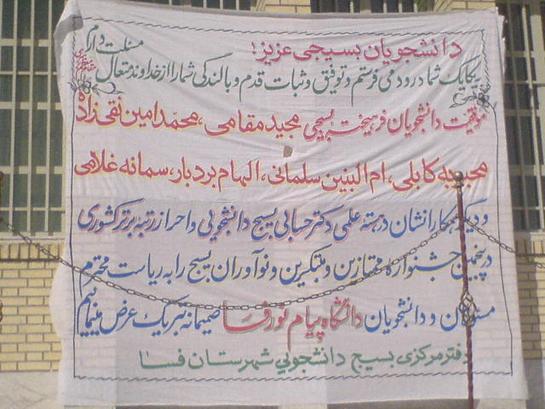 دانشجویان بسیجی عزیز!
یکایک شما درود می فرستم و توفیق و ثبات قدم و بالندگی شما را از خداوند متعال مسئلت دارم
موفقیت دانشجویان فرهیخته بسیجی مجید مقامی، محمد امین نقی زاده
محبوبه کابلی، ام البنین سلمانی، الهام بردبار، سمانه غلامی
و دیگر همکارانشان در هسته علمی دکتر حسابی بسیج دانشجویی و احراز رتبه برتر کشوری
در پنجمین جشنواره ممتازین و مبتکرین و نوآوران بسیج را به ریاست محترم
مسئولان و دانشجویان دانشگاه پیام نور فسا صمیمانه تبریک عرض مینمائیم
دفتر مرکزی بسیج دانشجویی شهرستان فسا